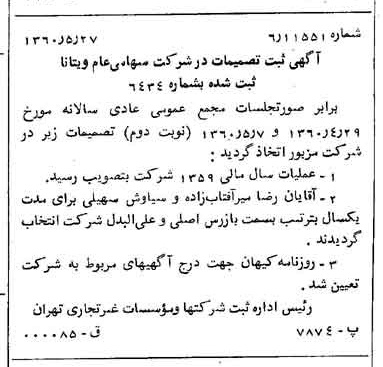 شماره ۶٫۱۱۵۵۱ ۱۳۶۰٫۵٫۲۷
آگهی ثبت تصمیمات در شرکت سهامی عام ویتانا
ثبت شده بشماره ۶۴۳۴
برابر صورتجلسات مجمع عمومی عادی سالانه مورخ
۱۳۶۰٫۴٫۲۹ و ۱۳۶۰٫۵٫۷ (نوبت دوم) تصمیمات زیر در
شرکت مزبور اتخاذ گردید :
۱ ـ عملیات سال مالی ۱۳۵۹ شرکت بتصویب رسید.
۲ ـ آقایان رضا میرآفتاب‌زاده و سیاوش سهیلی برای مدت
یکسال بترتیب بسمت بازرس اصلی و علی‌البدل شرکت انتخاب
گردیدند .
۳ ـ روزنامه کیهان جهت درج آگهیهای مربوط به شرکت
تعیین شد .
رئیس اداره ثبت شرکتها و مؤسسات غیرتجاری تهران
پ ـ ۷۸۷۴ ق ـ ۰۰۰۰۸۵